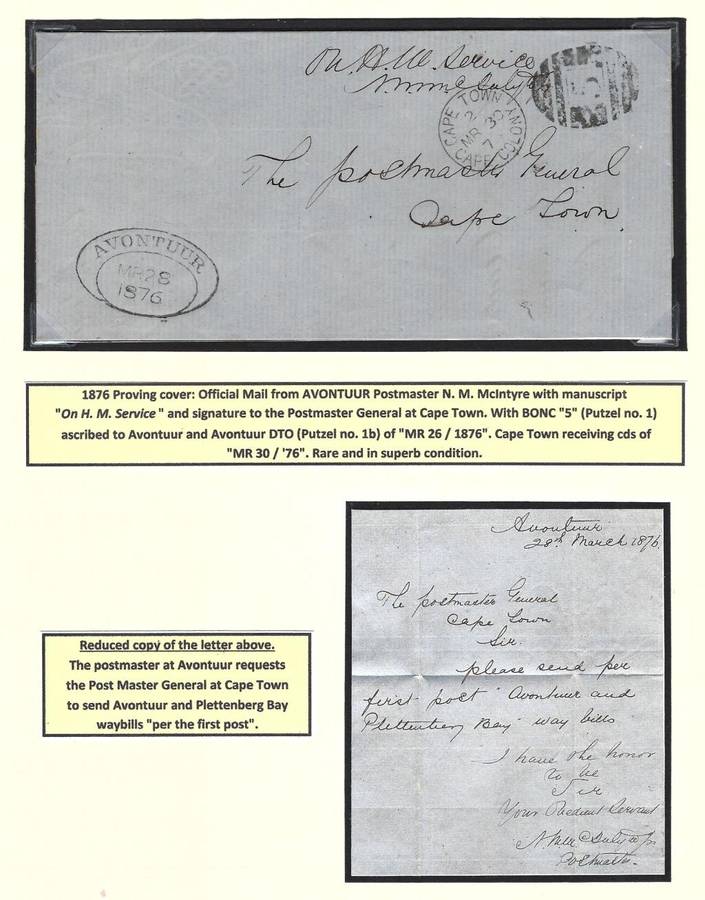 On H. M. Service
CAPE TOWN
MR 30
7
CAPE COLONY
5
The postmaster General
Cape Town.
AVONTUUR
MR 28
1876
1876 Proving cover: Official Mail from AVONTUUR Postmaster N. M. McIntyre with manuscript
"On H. M. Service" and signature to the Postmaster General at Cape Town. With BONC "5" (Putzel no. 1)
ascribed to Avontuur and Avontuur DTO (Putzel no. 1b) of "MR 26 / 1876". Cape Town receiving cds of
"MR 30 / '76". Rare and in superb condition.
Avontuur
28th March 1876.
The postmaster General
Cape Town
Sir.
please send per
first post "Avontuur and
Plettenberg Bay" way bills
I have the honor
to be
Sir
Your Obedient Servant
Postmaster.
Reduced copy of the letter above.
The postmaster at Avontuur requests
the Post Master General at Cape Town
to send Avontuur and Plettenberg Bay
waybills "per the first post".